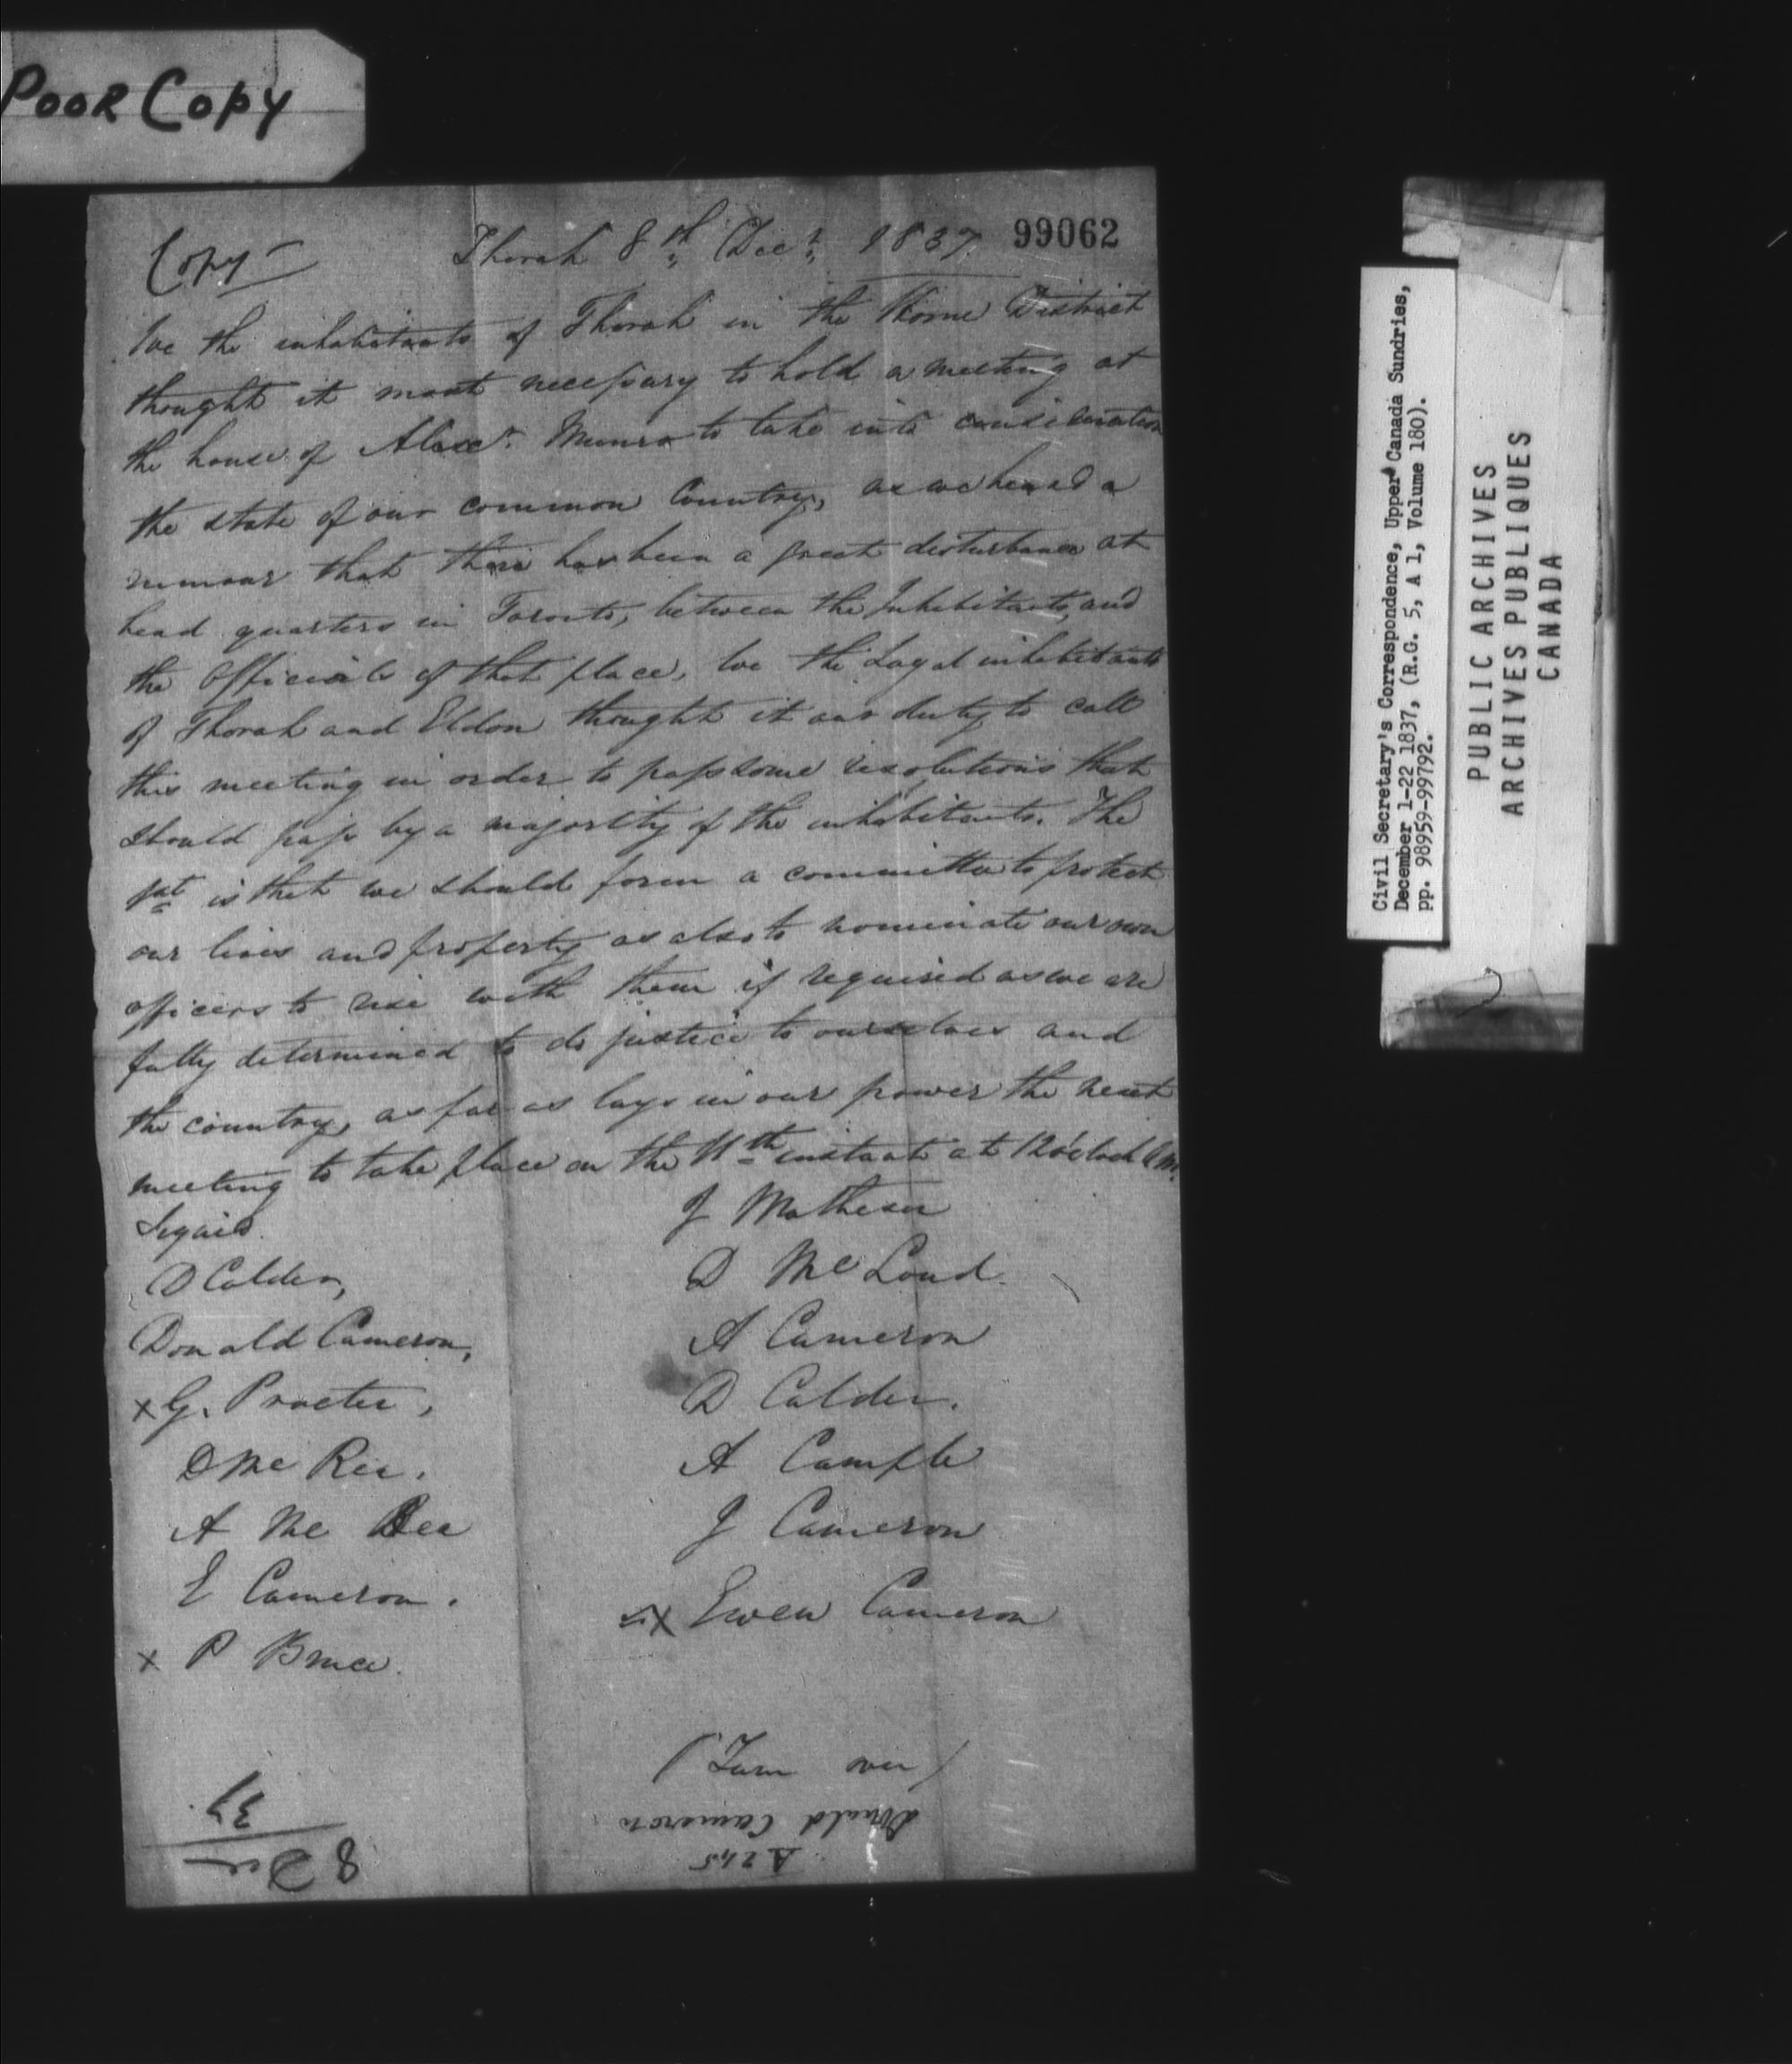 Poor Copy
99062
Copy
Thorah 8th Decr 1837.
We the inhabitants of Thorah in the Home District
thought it most necessary to hold a meeting at
the house of Alexr. Munro to take into consideration
the state of our common Country, as we heard a
rumour that there has been a great disturbance at
head quarters in Toronto, between the Inhabitants and
the Officials of that place, We the Loyal inhabitants
of Thorah and Eldon thought it our duty to call
this meeting in order to pass some resolutions that
should pass by a majority of the inhabitants. The
1st is that we should form a committee to protect
our lives and property as also to nominate our own
officers to rise with them if required as we are
fully determined to do justice to ourselves and
the country, as far as lays in our power the next
meeting to take place on the 11th instant at 12 o'clock
Signed.
D Calder,
Donald Cameron,
x G. Procter,
D Mc Rea.
A Mc Bea
E Cameron.
x P Bruce.
J Matheson
D McLoud.
A Cameron
D Calder.
A Cample
J Cameron
x Ewen Cameron
(Turn over)
Donald Cameron
A 245
8 Dec
37
Civil Secretary's Correspondence, Upper Canada Sundries,
December 1-22 1837, (R.G. 5, A 1, Volume 180).
pp. 98959-99792.
PUBLIC ARCHIVES
ARCHIVES PUBLIQUES
CANADA